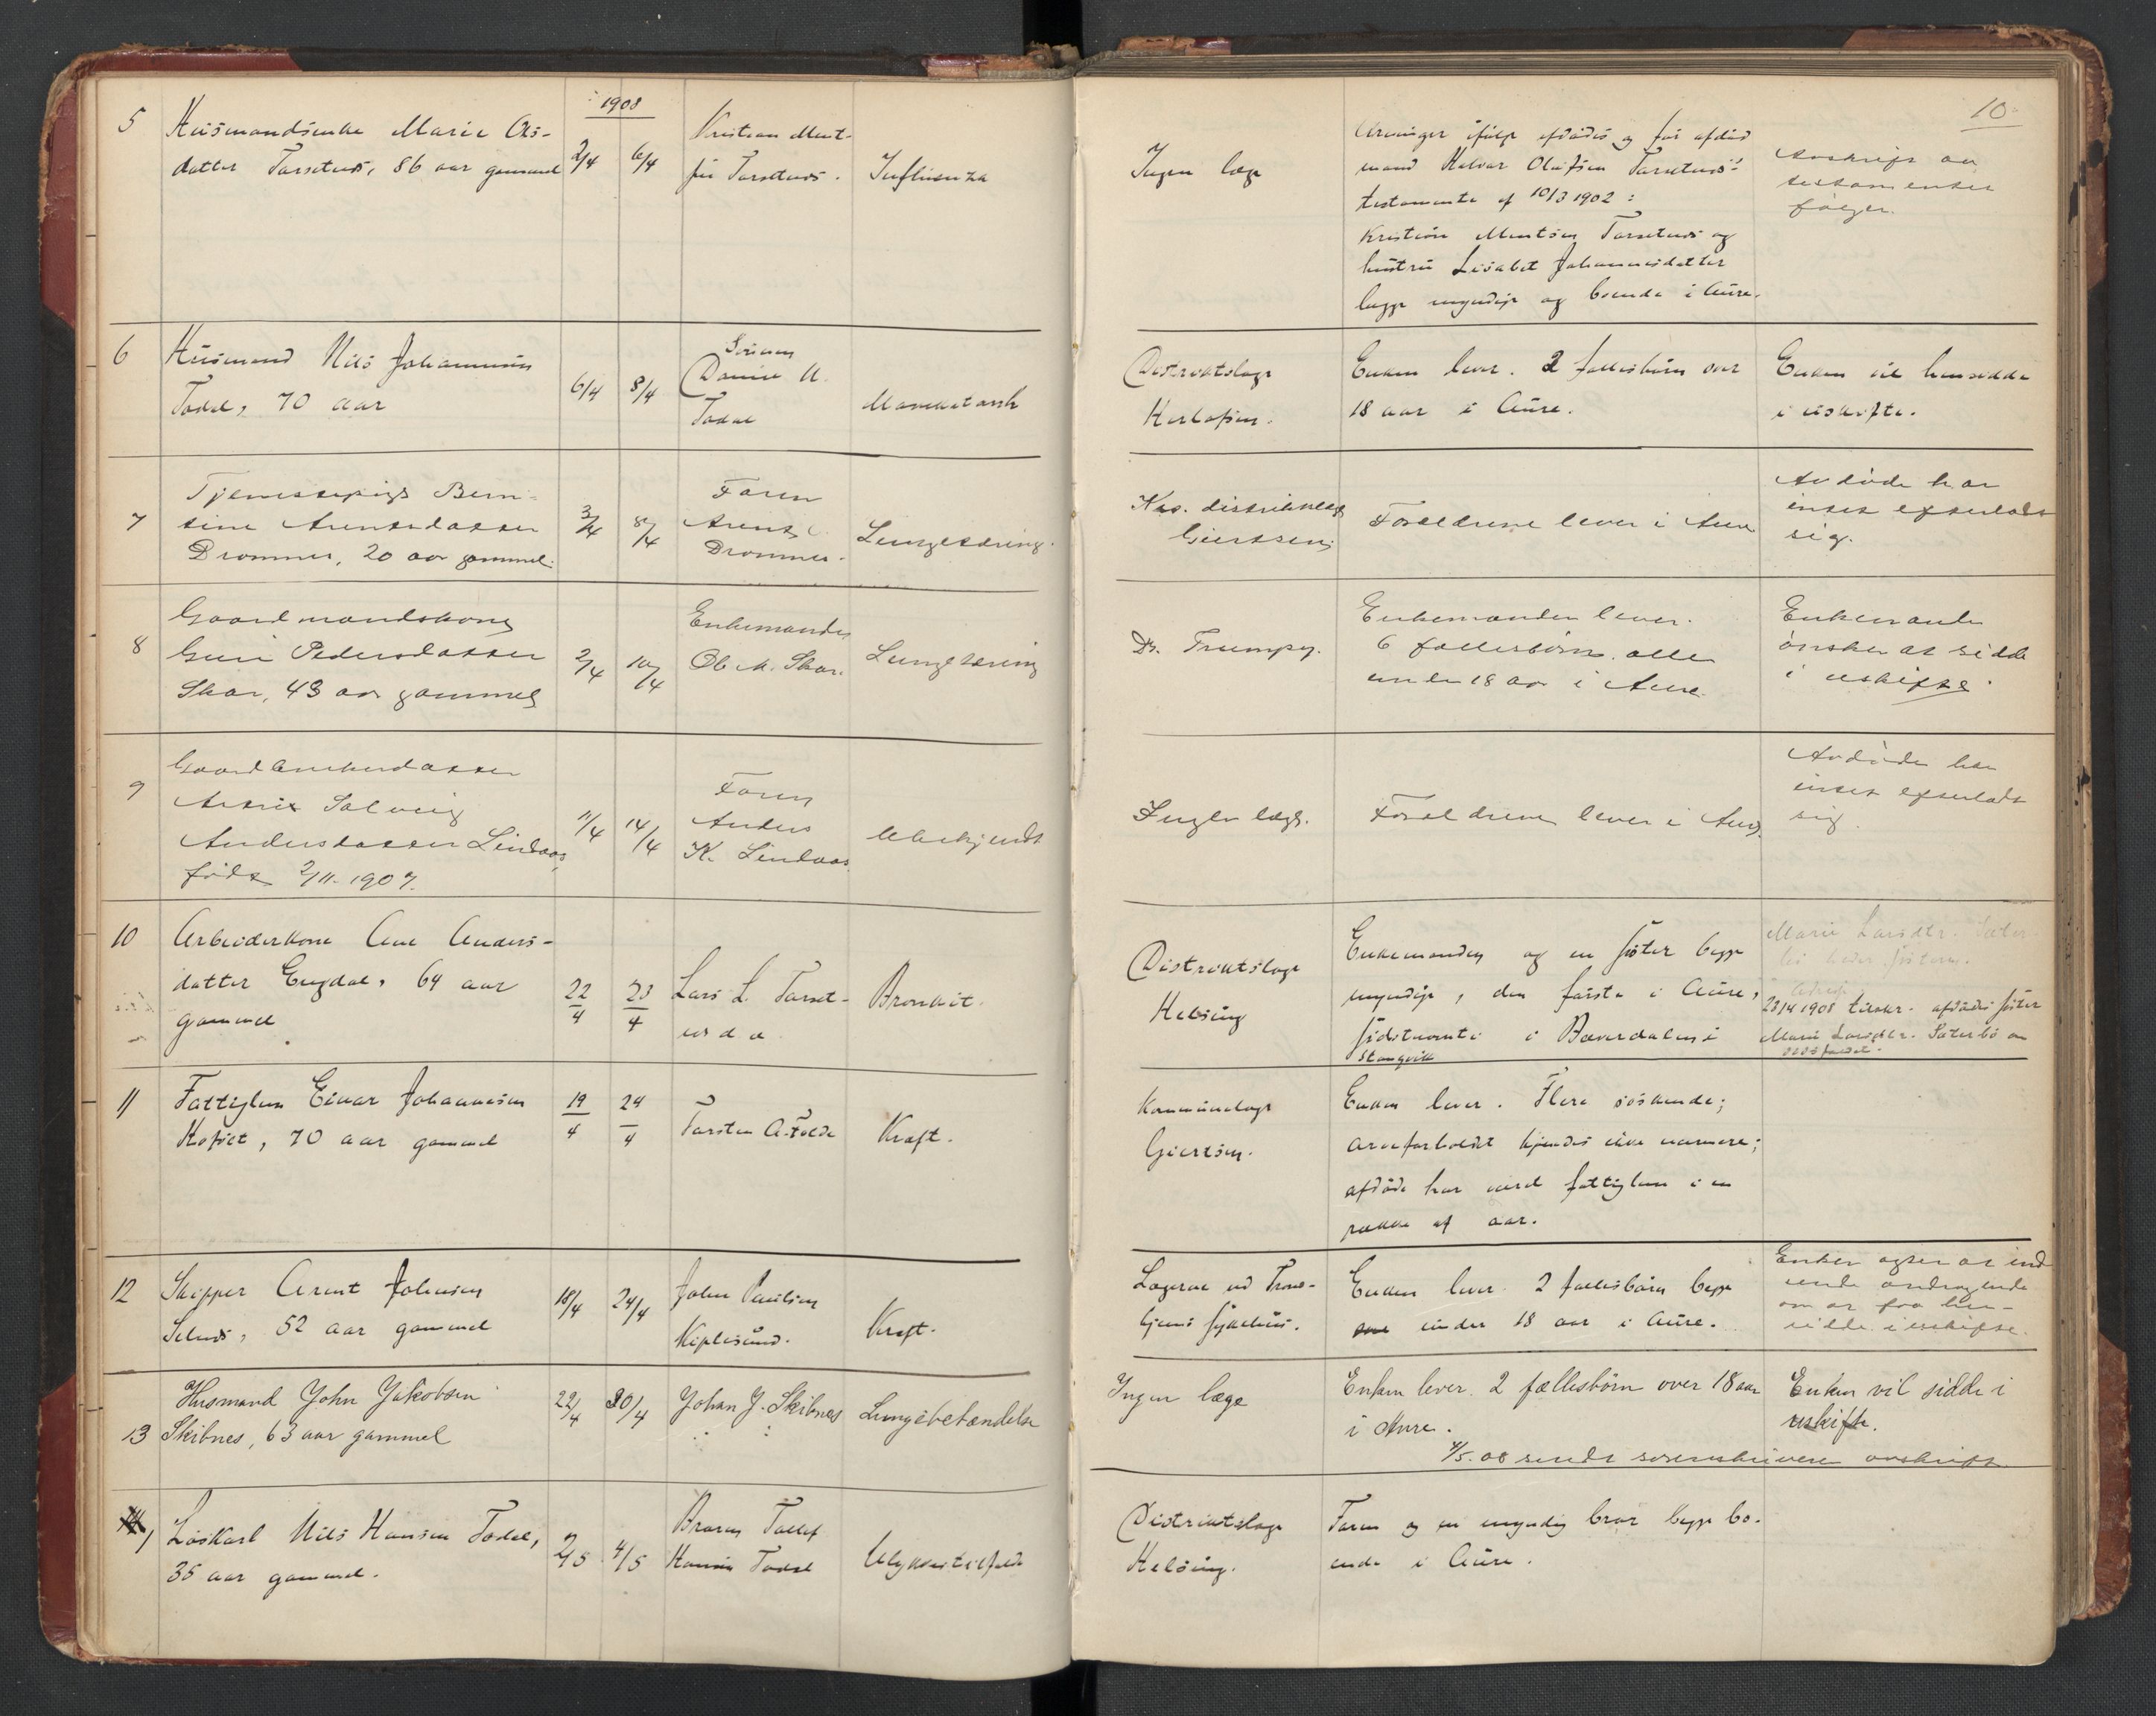 1908
5 Husmandsenke Marie Ols-
datter Tarsetnes, 86 aar gammel
2/4 6/4
Kristian Ment-
Tarsetnes.
Influenza
6 Husmand Nils Johannessen
Todal, 70 aar
6/4 8/4
Sønnen
Daniel N.
Todal
Mavekatarrh
7 Tjenestepige Bern-
sine Arentsdatter
Drommen, 20 aar gammel.
3/4 8/4
Faren
Arent
Drommen.
Lungetæring.
8 Gaardmandskone
Guri Pedersdatter
Skar, 43 aar gammel
2/4 10/4
Enkemanden
Ole M. Skar.
Lungetæring
9 Gaardbrukerdatter
Solveig
Andersdatter Lindaas,
født 2/11-1907.
11/4 14/4
Faren
Anders
K. Lindaas.
Ubekjendt
10 Arbeiderkone Ane Anders-
datter Engdal, 64 aar
gammel
22/4 23/4
Lars L. Tarset-
Bronkit.
11 Fattiglem Einar Johannesen
70 aar gammel
19/4 24/4
Tarsten A. Todal
Kræft.
12 Skipper Arent Johnsen
Selnes, 52 aar gammel
18/4 24/4
John Paulsen
Kiplesund.
Kræft.
13 Husmand John Jakobsen
Skibnes, 63 aar gammel
22/4 30/4
Johan J. Skibnes
Lungebetændelse
1 Løskarl Nils Hansen Todal,
35 aar gammel.
2/5 4/5
Broren Tollef
Hansen Todal
Ulykkestilfælde
10
Ingen læge
Arvinger ifølge afdødes og før afdød
mand Halvor Olufsen Tarsetnes'
testamente af 10/3 1902:
Kristian Mentsen Tarsetnes og
hustru Lisabet Johannesdatter
begge myndige og boende i Aure.
Avskrift av
testamentet
følger.
Distriktslæge
Enken lever. 2 fællesbørn over
18 aar i Aure.
Enken vil hensidde
i uskifte.
Kst. distriktslæge
Giertsen.
Forældrene lever i Aure
Avdøde har
intet efterladt
sig.
Dr. Trumpy.
Enkemanden lever.
6 fællesbørn, alle
under 18 aar i Aure.
Enkemanden
ønsker at sidde
i uskifte.
Ingen læge.
Forældrene lever i Aure.
Avdøde har
intet efterladt
sig.
Distriktslæge
Helsing
Enkemanden og en søster begge
myndige, den første i Aure,
sidstnævnte i Bæverdalen i
Stangvik
Marie Larsdtr. Sæter-
bø heder søsteren.
23/4 1908 tilskr. afdødes søster
Marie Larsdtr. Sæterbø om
dødsfaldet.
Kommunelæge
Giertsen.
Enken lever. Flere søskende;
arveforholdet kjendes ikke nærmere;
afdøde har været fattiglem i en
række af aar.
Lægerne ved Trond-
hjems sykehus.
Enken lever. 2 fællesbørn begge
under 18 aar i Aure.
Enken agter at ind-
sende andragende
om at faa hen-
sidde i uskifte.
Ingen læge
Enken lever. 2 fællesbørn over 18 aar
i Aure.
Enken vil sidde i
uskifte.
4/5.08 sendt sorenskriveren avskrift
Distriktslæge
Helsing.
Faren og en myndig bror begge bo-
ende i Aure.